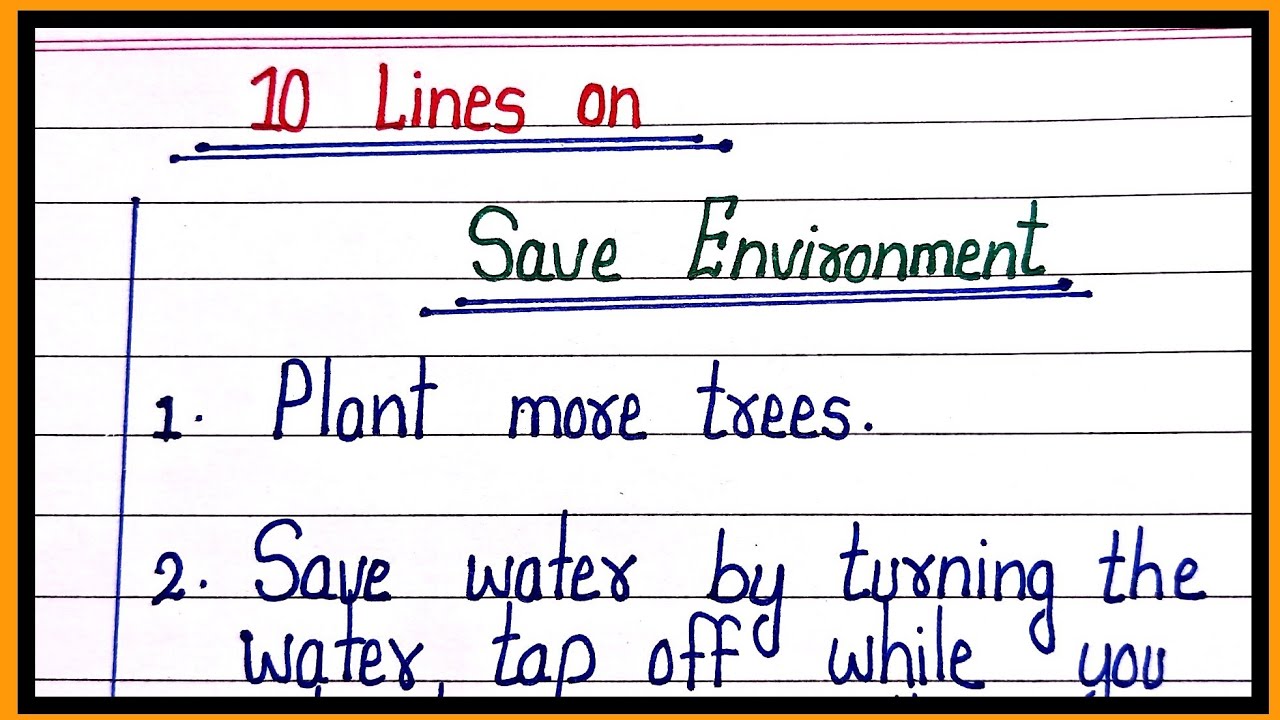 10 Lines on
Save Environment
1. Plant more trees.
2. Save water by turning the
water tap off while you